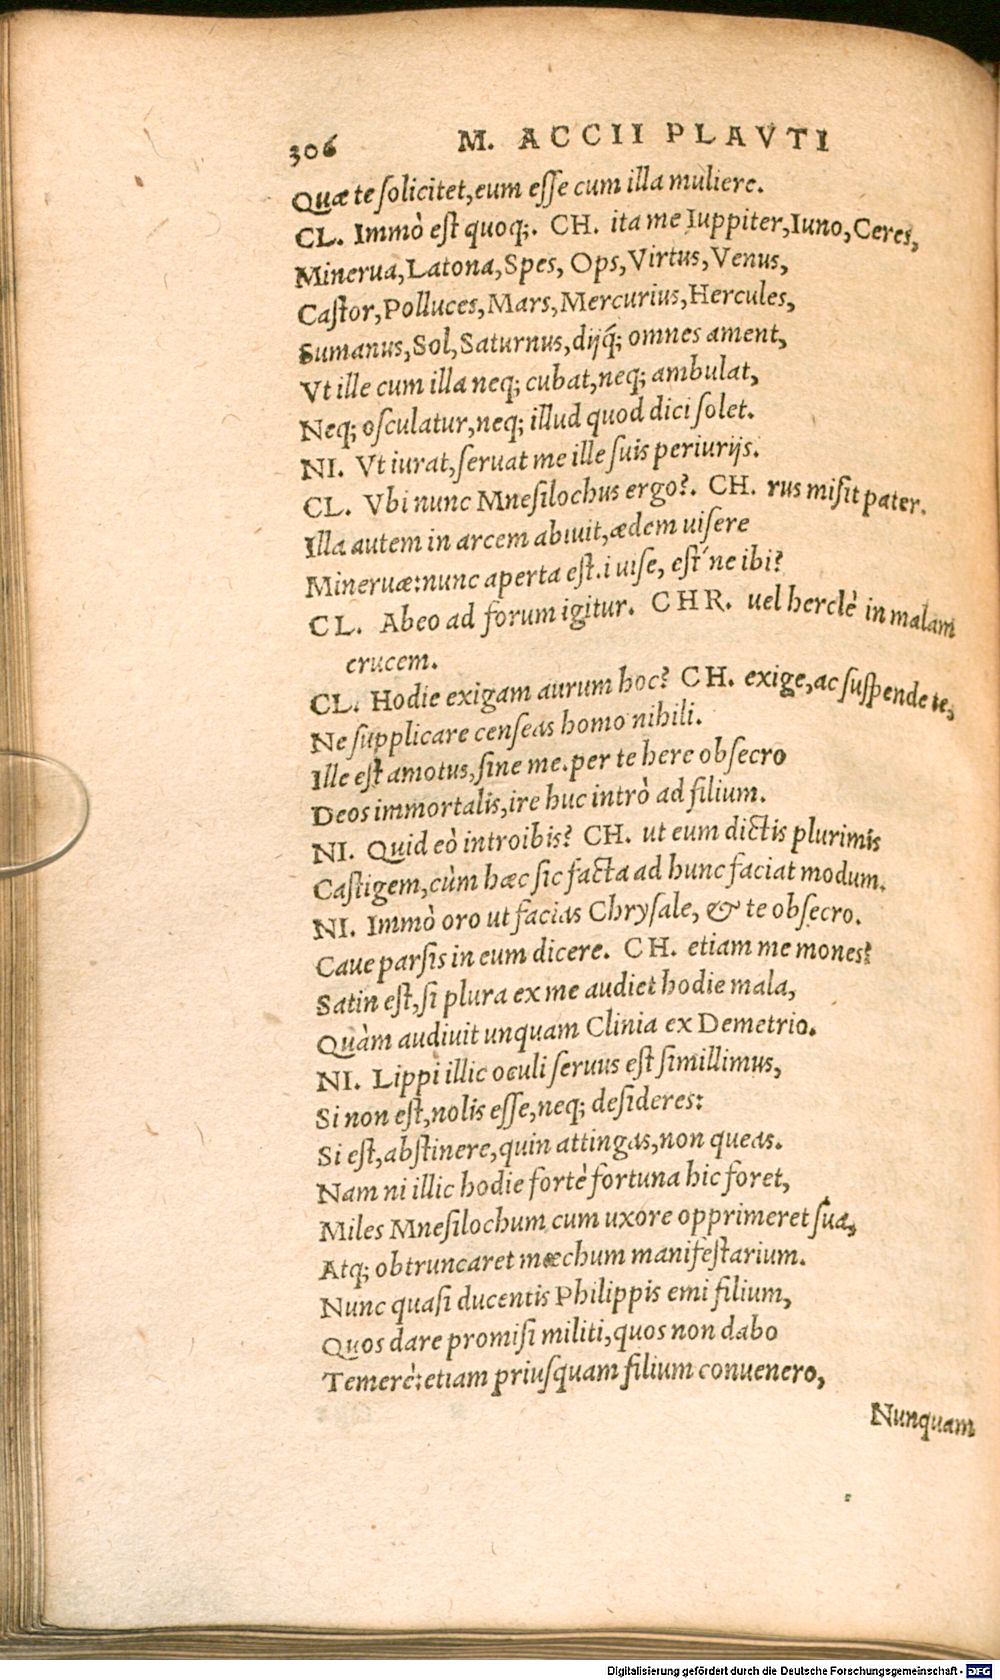 306 M. ACCII PLAVTI
Quæ te ſolicitet, eum eſſe cum illa muliere.
CL. Immò eſt quoq;. CH. ita me Iuppiter, Iuno, Ceres,
Minerua, Latona, Spes, Ops, Virtus, Venus,
Caſtor, Polluces, Mars, Mercurius, Hercules,
Sumanus, Sol, Saturnus, dijq́; omnes ament,
Vt ille cum illa neq; cubat, neq; ambulat,
Neq; oſculatur, neq; illud quod dici ſolet.
NI. Vt iurat, ſeruat me ille ſuis periurijs.
CL. Vbi nunc Mneſilochus ergo?. CH. rus miſit pater.
Illa autem in arcem abiuit, ædem uiſere
Mineruæ: nunc aperta eſt. i uiſe, eſt´ne ibi?
CL. Abeo ad forum igitur. CHR. uel herclè in malam
crucem.
CL. Hodie exigam aurum hoc? CH. exige, ac ſuſpende te,
Ne ſupplicare cenſeas homo nihili.
Ille eſt amotus, ſine me. per te here obſecro
Deos immortalis, ire huc intrò ad filium.
NI. Quid eò introibis? CH. ut eum dictis plurimis
Caſtigem, cùm hæc ſic facta ad hunc faciat modum.
NI. Immò oro ut facias Chryſale, & te obſecro.
Caue parſis in eum dicere. CH. etiam me mones?
Satin eſt, ſi plura ex me audiet hodie mala,
Quàm audiuit unquam Clinia ex Demetrio.
NI. Lippi illic oculi ſeruus eſt ſimillimus,
Si non eſt, nolis eſſe, neq; deſideres:
Si eſt, abſtinere, quin attingas, non queas.
Nam ni illic hodie fortè fortuna hic foret,
Miles Mneſilochum cum uxore opprimeret ſua,
Atq; obtruncaret mœchum manifeſtarium.
Nunc quaſi ducentis Philippis emi filium,
Quos dare promiſi militi, quos non dabo
Temerè: etiam priuſquam filium conuenero,
Nunquam
Digitalisierung gefördert durch die Deutsche Forschungsgemeinschaft - DFG